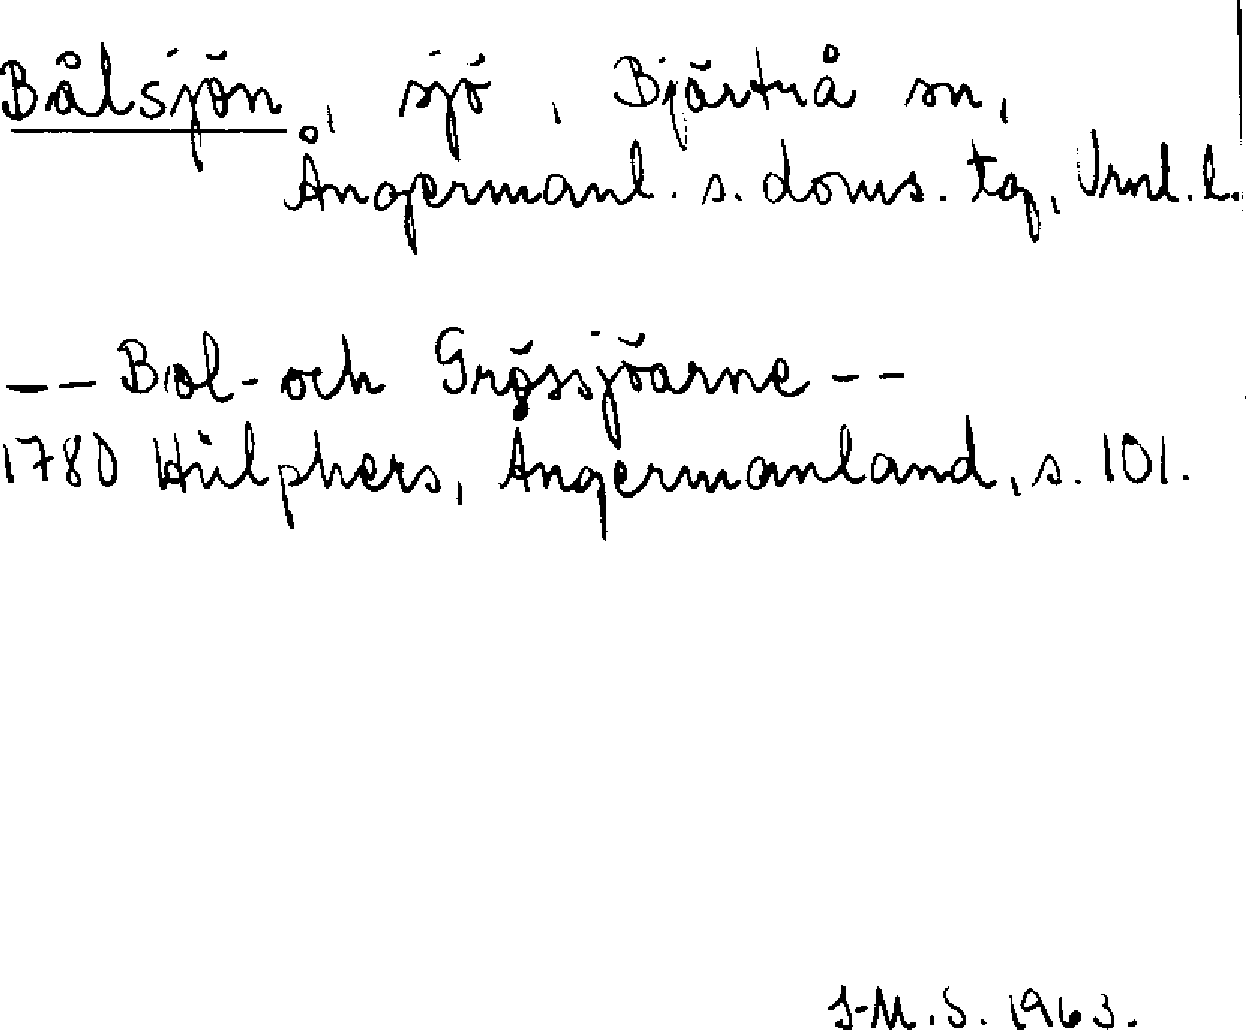 Bålsjön, sjö, Bjärtrå sn,
Ångermanl. s. doms. tg, Vrnl. l.
-- Bol- och Grössjöarne --
1780 Hülphers, Ångermanland, s. 101.
I-M.S. 1963.